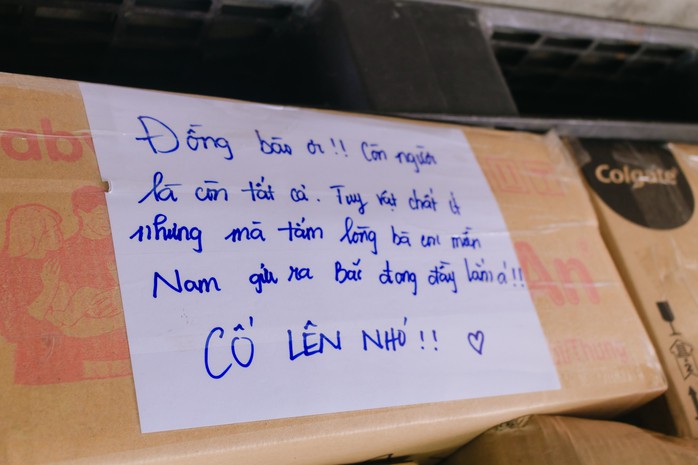 aby
Đồng bào ơi!! Còn người
là còn tất cả. Tuy vật chất ít
nhưng mà tấm lòng bà con miền
Nam gửi ra Bắc đong đầy lắm á!!
CỐ LÊN NHÓ!! ♡
An
Colgate